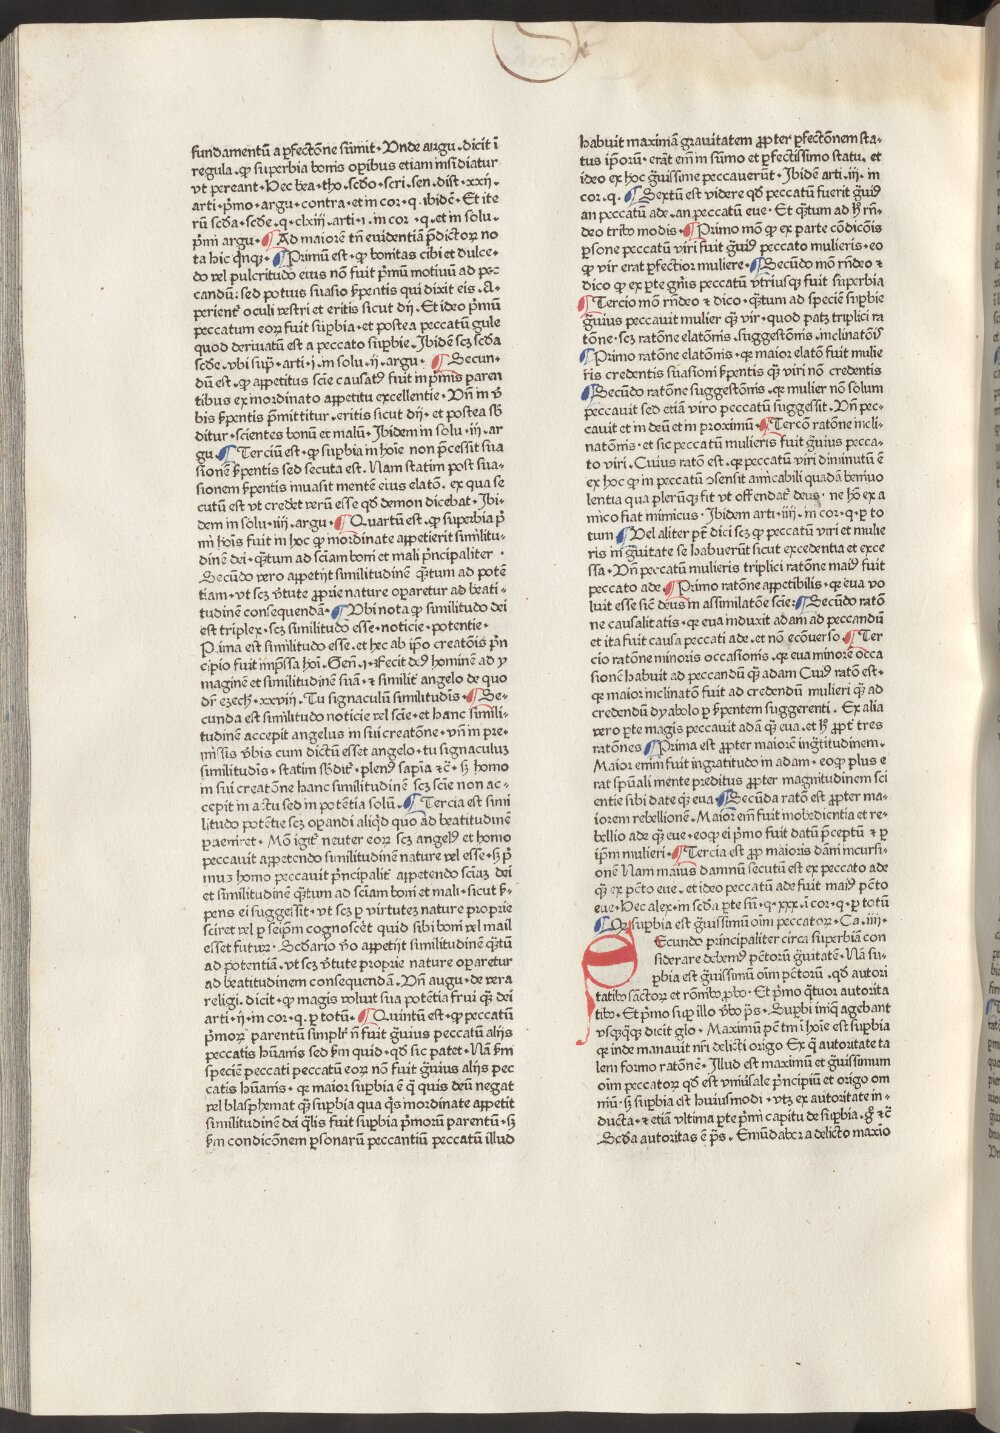 fundamentū a ꝑfectōne sūmit. Vnde augu. dicit ī
regula. ꝙ superbia bonis oꝑibus etiam insidiatur
vt pereant. Hec bea. tho. scḋo. scri. sen. dist. xxii.
arti. pͥmo. argu. contra. et in cor. q. ibidē. Et ite
rū scḋa. scḋe. q. clxiii. arti. 1. in cor. q. et in solu.
pͥmi argu. ¶ Ad maiorē tn̄ euidentiā p̄dictoꝝ no
ta hic qͥnqꝫ. ¶ Primū est. ꝙ bonitas cibi et dulce-
do vel pulcritudo eius nō fuit pͥmū motiuū ad pec
candū: sed potius suasio ẜpentis qui dixit eis. A-
perient᷑ oculi vestri et eritis sicut dij. Et ideo pͥmū
peccatum eoꝝ fuit suꝑbia. et postea peccatū gule
quod deriuatū est a peccato suꝑbie. Ibidē scꝫ scḋa
scḋe. vbi supͣ. arti. i. in solu. ii. argu. ¶ Secun-
dū est. ꝙ appetitus scīe causatꝰ fuit in pͥmis paren
tibus ex inordinato appetitu excellentie. Vn̄ in v̓
bis ẜpentis p̄mittitur. eritis sicut dij. et postea sb̄
ditur. scientes bonū et malū. Ibidem in solu. iii. ar
gu. ¶ Terciū est. ꝙ suꝑbia in hoīe non p̄cessit sua
sionē ẜpentis sed secuta est. Nam statim post sua-
sionem ẜpentis inuasit mentē eius elatō. ex qua se
cutū est vt credet verū esse qḋ demon dicebat. Ibi-
dem in solu. iiii. argu. ¶ Quartū est. ꝙ superbia pͥ
mi hoīs fuit in hoc ꝙ inordinate appetierit similitu-
dinē dei. qͣtum ad sciam boni et mali pͥncipaliter.
Secūdo vero appetijt similitudinē qͣtum ad potē
tiam. vt scꝫ v̓tute ꝓprie nature oꝑaretur ad beati-
tudinē consequendā. ¶ Vbi nota ꝙ similitudo dei
est triplex. scꝫ similitudo esse. noticie. potentie.
Prima est similitudo esse. et hec ab ip̄o creatōis pͥn
cipio fuit imp̄ssa hoī. Geñ. 1. Fecit deꝰ hominē ad y
maginē et similitudinē suā. ⁊ similit̓ angelo de quo
dr̄ ezech. xxviii. Tu signaculū similitudīs. ¶ Se-
cunda est similitudo noticie vel scīe. et hanc simili-
tudinē accepit angelus in sui creatōne. vn̄ in pre-
missis v̓bis cum dictū esset angelo. tu signaculuꝫ
similitudīs. statim sb̄dit᷑. plenꝰ sapīa ⁊c̄. sꝫ homo
in sui creatōne hanc similitudinē scꝫ scīe non ac-
cepit in actu sed in potētia solū. ¶ Tercia est simi
litudo potētie scꝫ oꝑandi aliqͥd quo ad beatitudinē
ꝑueniret. Mō igit̓ neuter eoꝝ scꝫ angelꝰ et homo
peccauit appetendo similitudinē nature vel esse. sꝫ pͥ
muꝫ homo peccauit pͥncipalit̓ appetendo sciaꝫ dei
et similitudinē qͣtum ad sciam boni et mali. sicut ẜ-
pens ei suggessit. vt scꝫ ꝑ virtuteꝫ nature proprie
sciret vel ꝑ seip̄m cognoscēt quid sibi boni vel mali
esset futuꝝ. Scḋario v̓o appetijt similitudinē qͣtū
ad potentiā. vt scꝫ v̓tute proprie nature oꝑaretur
ad beatitudinem consequendā. Vn̄ augu. de vera
religi. dicit. ꝙ magis voluit sua potētia frui qͣ dei
arti. ii. in cor. q. ꝑ totū. ¶ Quintū est. ꝙ peccatū
pͥmoꝝ parentū simplr̄ n̄ fuit gͣuius peccatū alijs
peccatis hūanis sed ẜm quid. qḋ sic patet. Nā ẜm
speciē peccati peccatū eoꝝ nō fuit gͣuius alijs pec
catis hūanis. qꝛ maior suꝑbia ē qͣ quis deū negat
vel blasphemat qͣ suꝑbia qua qͥs inordinate appetit
similitudinē dei qͣlis fuit suꝑbia pͥmoꝝ parentū. sꝫ
ẜm condicōnem ꝑsonarū peccantiū peccatū illud
habuit maximā grauitatem ꝓpter ꝑfectōnem sta-
tus ip̄orū. erāt enī in sūmo et ꝑfectissimo statu. et
ideo ex hoc gͣuissime peccauerūt. Ibidē arti. iii. in
cor. q. ¶ Sextū est videre qḋ peccatū fuerit gͣuiꝰ
an peccatū ade. an peccatū eue. Et qͣtum ad hͦ rn̄-
deo tribꝰ modis. ¶ Primo mō ꝙ ex parte cōdicōis
ꝑsone peccatū viri fuit gͣuiꝰ peccato mulieris. eo
ꝙ vir erat ꝑfectior muliere. ¶ Secūdo mō rn̄deo ⁊
dico ꝙ ex pte gn̄is peccatū vtriusqꝫ fuit suꝑbia
¶ Tercio mō rn̄deo ⁊ dico. qͣtum ad speciē suꝑbie
gͣuius peccauit mulier qͣ vir. quod patꝫ triplici ra
tōne. scꝫ ratōne elatōnis. suggestōnis. inclinatōīs
¶ Primo ratōne elatōnis. qꝛ maior elatō fuit mulie
ris credentis suasioni ẜpentis qͣ viri nō credentis
¶ Secūdo ratōne suggestōnis. qꝛ mulier nō solum
peccauit sed etiā viro peccatū suggessit. Vn̄ pec-
cauit et in deū et in proximū. ¶ Terco ratōne incli-
natōnis. et sic peccatū mulieris fuit gͣuius pecca-
to viri. Cuius ratō est. qꝛ peccatū viri diminutū ē
ex hoc ꝙ in peccatū ꝯsensit amicabili quadā beniuo
lentia qua plerūqꝫ fit vt offendat᷑ deus. ne hō ex a
mico fiat inimicus. Ibidem arti. iiii. in cor. q. ꝑ to
tum ¶ Vel aliter pt̄ dici scꝫ ꝙ peccatū viri et mulie
ris in gͣuitate se habuerūt sicut excedentia et exce
ssa. Vn̄ peccatū mulieris triplici ratōne maiꝰ fuit
peccato ade. ¶ Primo ratōne appetibilis. qꝛ eua vo
luit esse sicut deus in assimilatōe scīe: ¶ Secūdo ratō
ne causalitatis. qꝛ eua induxit adam ad peccandū
et ita fuit causa peccati ade. et nō ecōuerso. ¶ Ter
cio ratōne minoris occasionis. qꝛ eua minorē occa
sionē habuit ad peccandū qͣ adam Cuiꝰ ratō est.
qꝛ maior inclinatō fuit ad credendū mulieri qͣ ad
credendū dyabolo ꝑ ẜpentem suggerenti. Ex alia
vero pte magis peccauit adā qͣ eua. et hͦ ꝓpt̓ tres
ratōnes ¶ Prima est ꝓpter maiorē ingͣtitudinem.
Maior enī fuit ingratitudo in adam. eoꝙ plus e
rat spūali mente preditus ꝓpter magnitudinem sci
entie sibi date qͣ eua ¶ Secūda ratō est ꝓpter ma-
iorem rebellionē. Maior enī fuit inobedientia et re-
bellio ade qͣ eue. eoꝙ ei pͥmo fuit datū p̄ceptū ⁊ ꝑ
ip̄m mulieri. ¶ Tercia est ꝓp̄ maioris dāni incursi-
onē Nam maius damnū secutū est ex peccato ade
qͣ ex pctō eue. et ideo peccatū ade fuit maiꝰ pctō
eue. Hec alex. in scḋa ꝑte sū. q. xxx. ī cor. q. ꝑ totū
¶ Qꝙ suꝑbia est gͣuissimū oīm peccatoꝝ. Ca. iiii.
Secundo principaliter circa superbiā con
siderare debemꝰ pctōrū gͣuitatē. Nā su-
ꝑbia est gͣuissimū oīm pctōrū. qḋ autori
tatibꝰ sāctoꝝ et rōnibꝰ ꝓbo. Et pͥmo qͣtuor autorita
tibꝰ. Et pͥmo suꝑ illo v̓bo p̄s. Suꝑbi iniq̄ agebant
vsqꝫqͣqꝫ dicit glo. Maximū pctm̄ ī hoīe est suꝑbia
qꝛ inde manauit nr̄i delicti origo Ex qͣ autoritate ta
lem formo ratōnē. Illud est maximū et gͣuissimum
oīm peccatoꝝ qḋ est vniūsale pͥncipiū et origo om
niū. sꝫ suꝑbia est huiusmodi. vtꝫ ex autoritate in-
ducta. ⁊ etiā vltima ꝑte pͥmi capitu de suꝑbia. gͦ ⁊c̄
Scḋa autoritas ē p̄s. Emūdabor a delicto maxīo